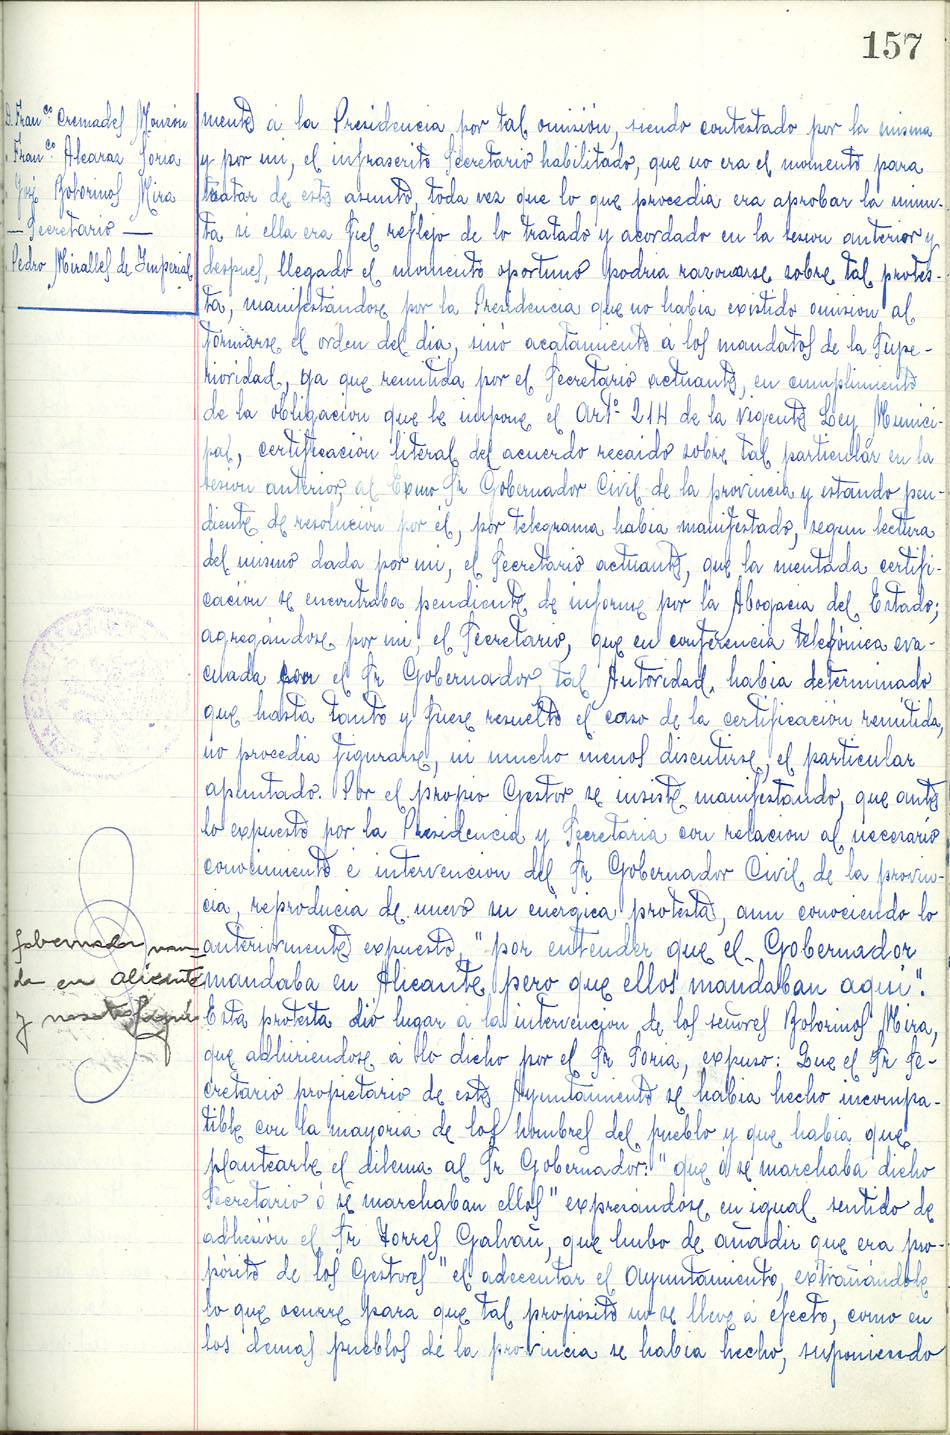 157
D. Franco Cremades Monzón
" Franco Alcaraz Soria
José Botorinos Mira
— Secretario —
Pedro Miralles de Imperial
mente á la Presidencia por tal omisión, siendo contestado por la misma
y por mi, el infrascrito Secretario habilitado, que no era el momento para
tratar de este asunto, toda vez que lo que procedia era aprobar la minu-
ta si ella era fiel reflejo de lo tratado y acordado en la sesion anterior y
despues, llegado el momento oportuno podria razonarse sobre tal protes-
ta, manifestandose por la Presidencia que no habia existido omision al
formarse el orden del dia, sinó acatamiento á los mandatos de la Supe-
rioridad, ya que remitida por el Secretario actuante, en cumplimiento
de la obligacion que le impone el Artº 214 de la vigente Ley Munici-
pal, certificación literal del acuerdo recaido sobre tal particular en la
sesion anterior, al Exmo Sr Gobernador Civil de la provincia y estando pen-
diente de resolución por él, por telegrama habia manifestado, segun lectura
del mismo dada por mi, el Secretario actuante, que la mentada certifi-
cación se encontraba pendiente de informe por la Abogacia del Estado;
agregándose por mi, el Secretario, que en conferencia telefónica eva-
cuada con el Sr Gobernador, tal Autoridad, habia determinado
que hasta tanto y fuese resuelto el caso de la certificación remitida,
no procedia figurarse, ni mucho menos discutirse, el particular
apuntado. Por el propio Gestor se insiste manifestando, que ante
lo expuesto por la Presidencia y Secretaria con relacion al necesario
conocimiento é intervencion del Sr Gobernador Civil de la provin-
cia, reproducia de nuevo su enérgica protesta, aun conociendo lo
anteriormente expuesto, "por entender que el Gobernador
mandaba en Alicante, pero que ellos mandaban aqui".
Esta protesta dió lugar a la intervencion de los señores Botorinos Mira,
que adhiriendose á lo dicho por el Sr Soria, expuso: Que el Sr Se-
cretario propietario de este Ayuntamiento se habia hecho incompa-
tible con la mayoria de los hombres del pueblo y que habia que
plantearle el dilema al Sr Gobernador: "que ó se marchaba dicho
Secretario ó se marchaban ellos" expresandose en igual sentido de
adhesión el Sr Torres Galvañ, que hubo de añadir que era pro-
pósito de los Gestores "el adecentar el Ayuntamiento, extrañándole
lo que ocurre para que tal propósito no se lleve á efecto, como en
los demas pueblos de la provincia se habia hecho, suponiendo
gobernador man-
da en Alicante
y nosotros aquí